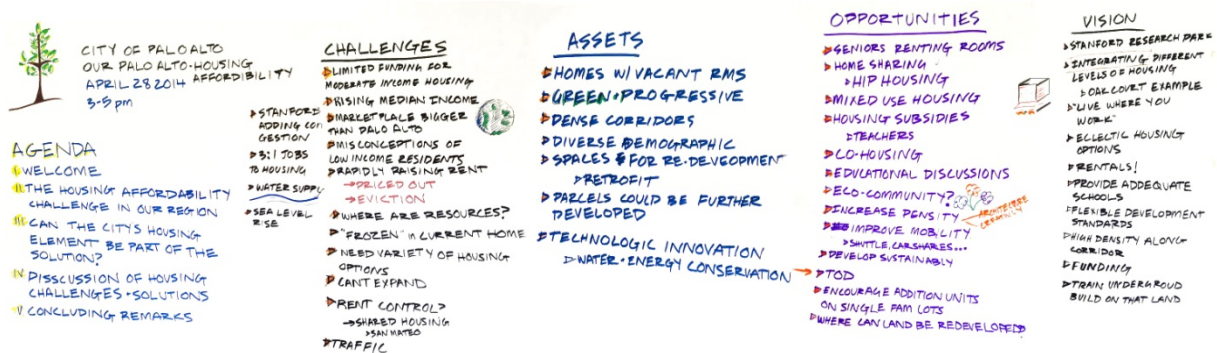 CITY OF PALO ALTO
OUR PALO ALTO·HOUSING
AFFORDIBILITY
APRIL 28 2014
3-5 pm
AGENDA
I. WELCOME
II. THE HOUSING AFFORDABILITY
CHALLENGE IN OUR REGION
III. CAN THE CITYS HOUSING
ELEMENT BE PART OF THE
SOLUTION?
IV DISSCUSSION OF HOUSING
CHALLENGES·SOLUTIONS
V CONCLUDING REMARKS
STANFORD
ADDING CON
GESTION
3:1 JOBS
TO HOUSING
WATER SUPPLY
SEA LEVEL
RISE
CHALLENGES
LIMITED FUNDING FOR
MODERATE INCOME HOUSING
RISING MEDIAN INCOME
MARKETPLACE BIGGER
THAN PALO ALTO
MISCONCEPTIONS OF
LOW INCOME RESIDENTS
RAPIDLY RAISING RENT
→PRICED OUT
→EVICTION
WHERE ARE RESOURCES?
"FROZEN" in CURRENT HOME
NEED VARIETY OF HOUSING
OPTIONS
CANT EXPAND
RENT CONTROL?
→SHARED HOUSING
SAN MATEO
TRAFFIC
ASSETS
HOMES W/VACANT RMS
GREEN·PROGRESSIVE
DENSE CORRIDORS
DIVERSE DEMOGRAPHIC
SPACES FOR RE-DEVEOPMENT
RETROFIT
PARCELS COULD BE FURTHER
DEVELOPED
TECHNOLOGIC INNOVATION
WATER·ENERGY CONSERVATION →
OPPORTUNITIES
SENIORS RENTING ROOMS
HOME SHARING
HIP HOUSING
MIXED USE HOUSING
HOUSING SUBSIDIES
TEACHERS
CO-HOUSING
EDUCATIONAL DISCUSSIONS
ECO-COMMUNITY?
INCREASE DENSITY
ARCHITECTURE
CREATIVELY
IMPROVE MOBILITY
SHUTTLE, CARSHARES...
DEVELOP SUSTAINABLY
TOD
ENCOURAGE ADDITION UNITS
ON SINGLE FAM LOTS
WHERE CAN LAND BE REDEVELOPED?
VISION
STANFORD RESEARCH PARK
INTEGRATING DIFFERENT
LEVELS OF HOUSING
OAK COURT EXAMPLE
"LIVE WHERE YOU
WORK"
ECLECTIC HOUSING
OPTIONS
RENTALS!
PROVIDE ADDEQUATE
SCHOOLS
FLEXIBLE DEVELOPMENT
STANDARDS
HIGH DENSITY ALONG
CORRIDOR
FUNDING
TRAIN UNDERGROUD
BUILD ON THAT LAND